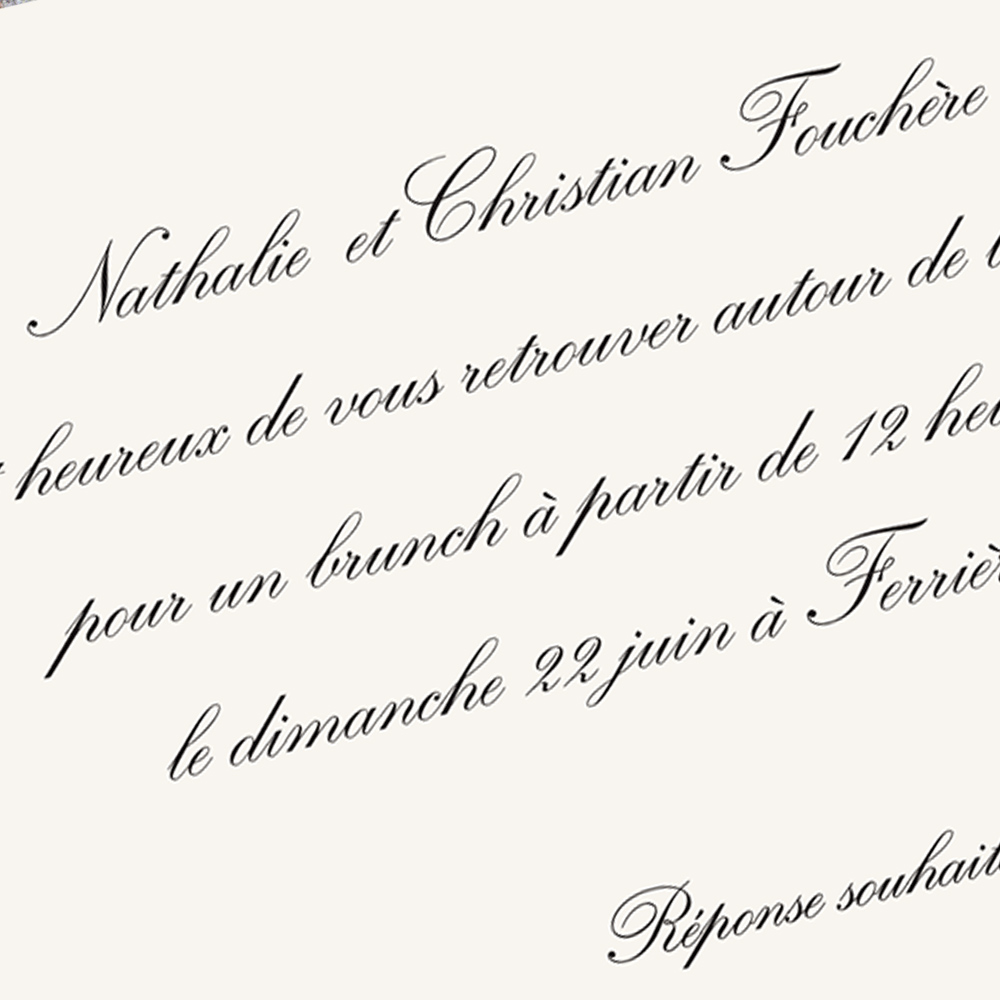 Nathalie et Christian Fouchère
heureux de vous retrouver autour de
pour un brunch à partir de 12
le dimanche 22 juin à
Réponse